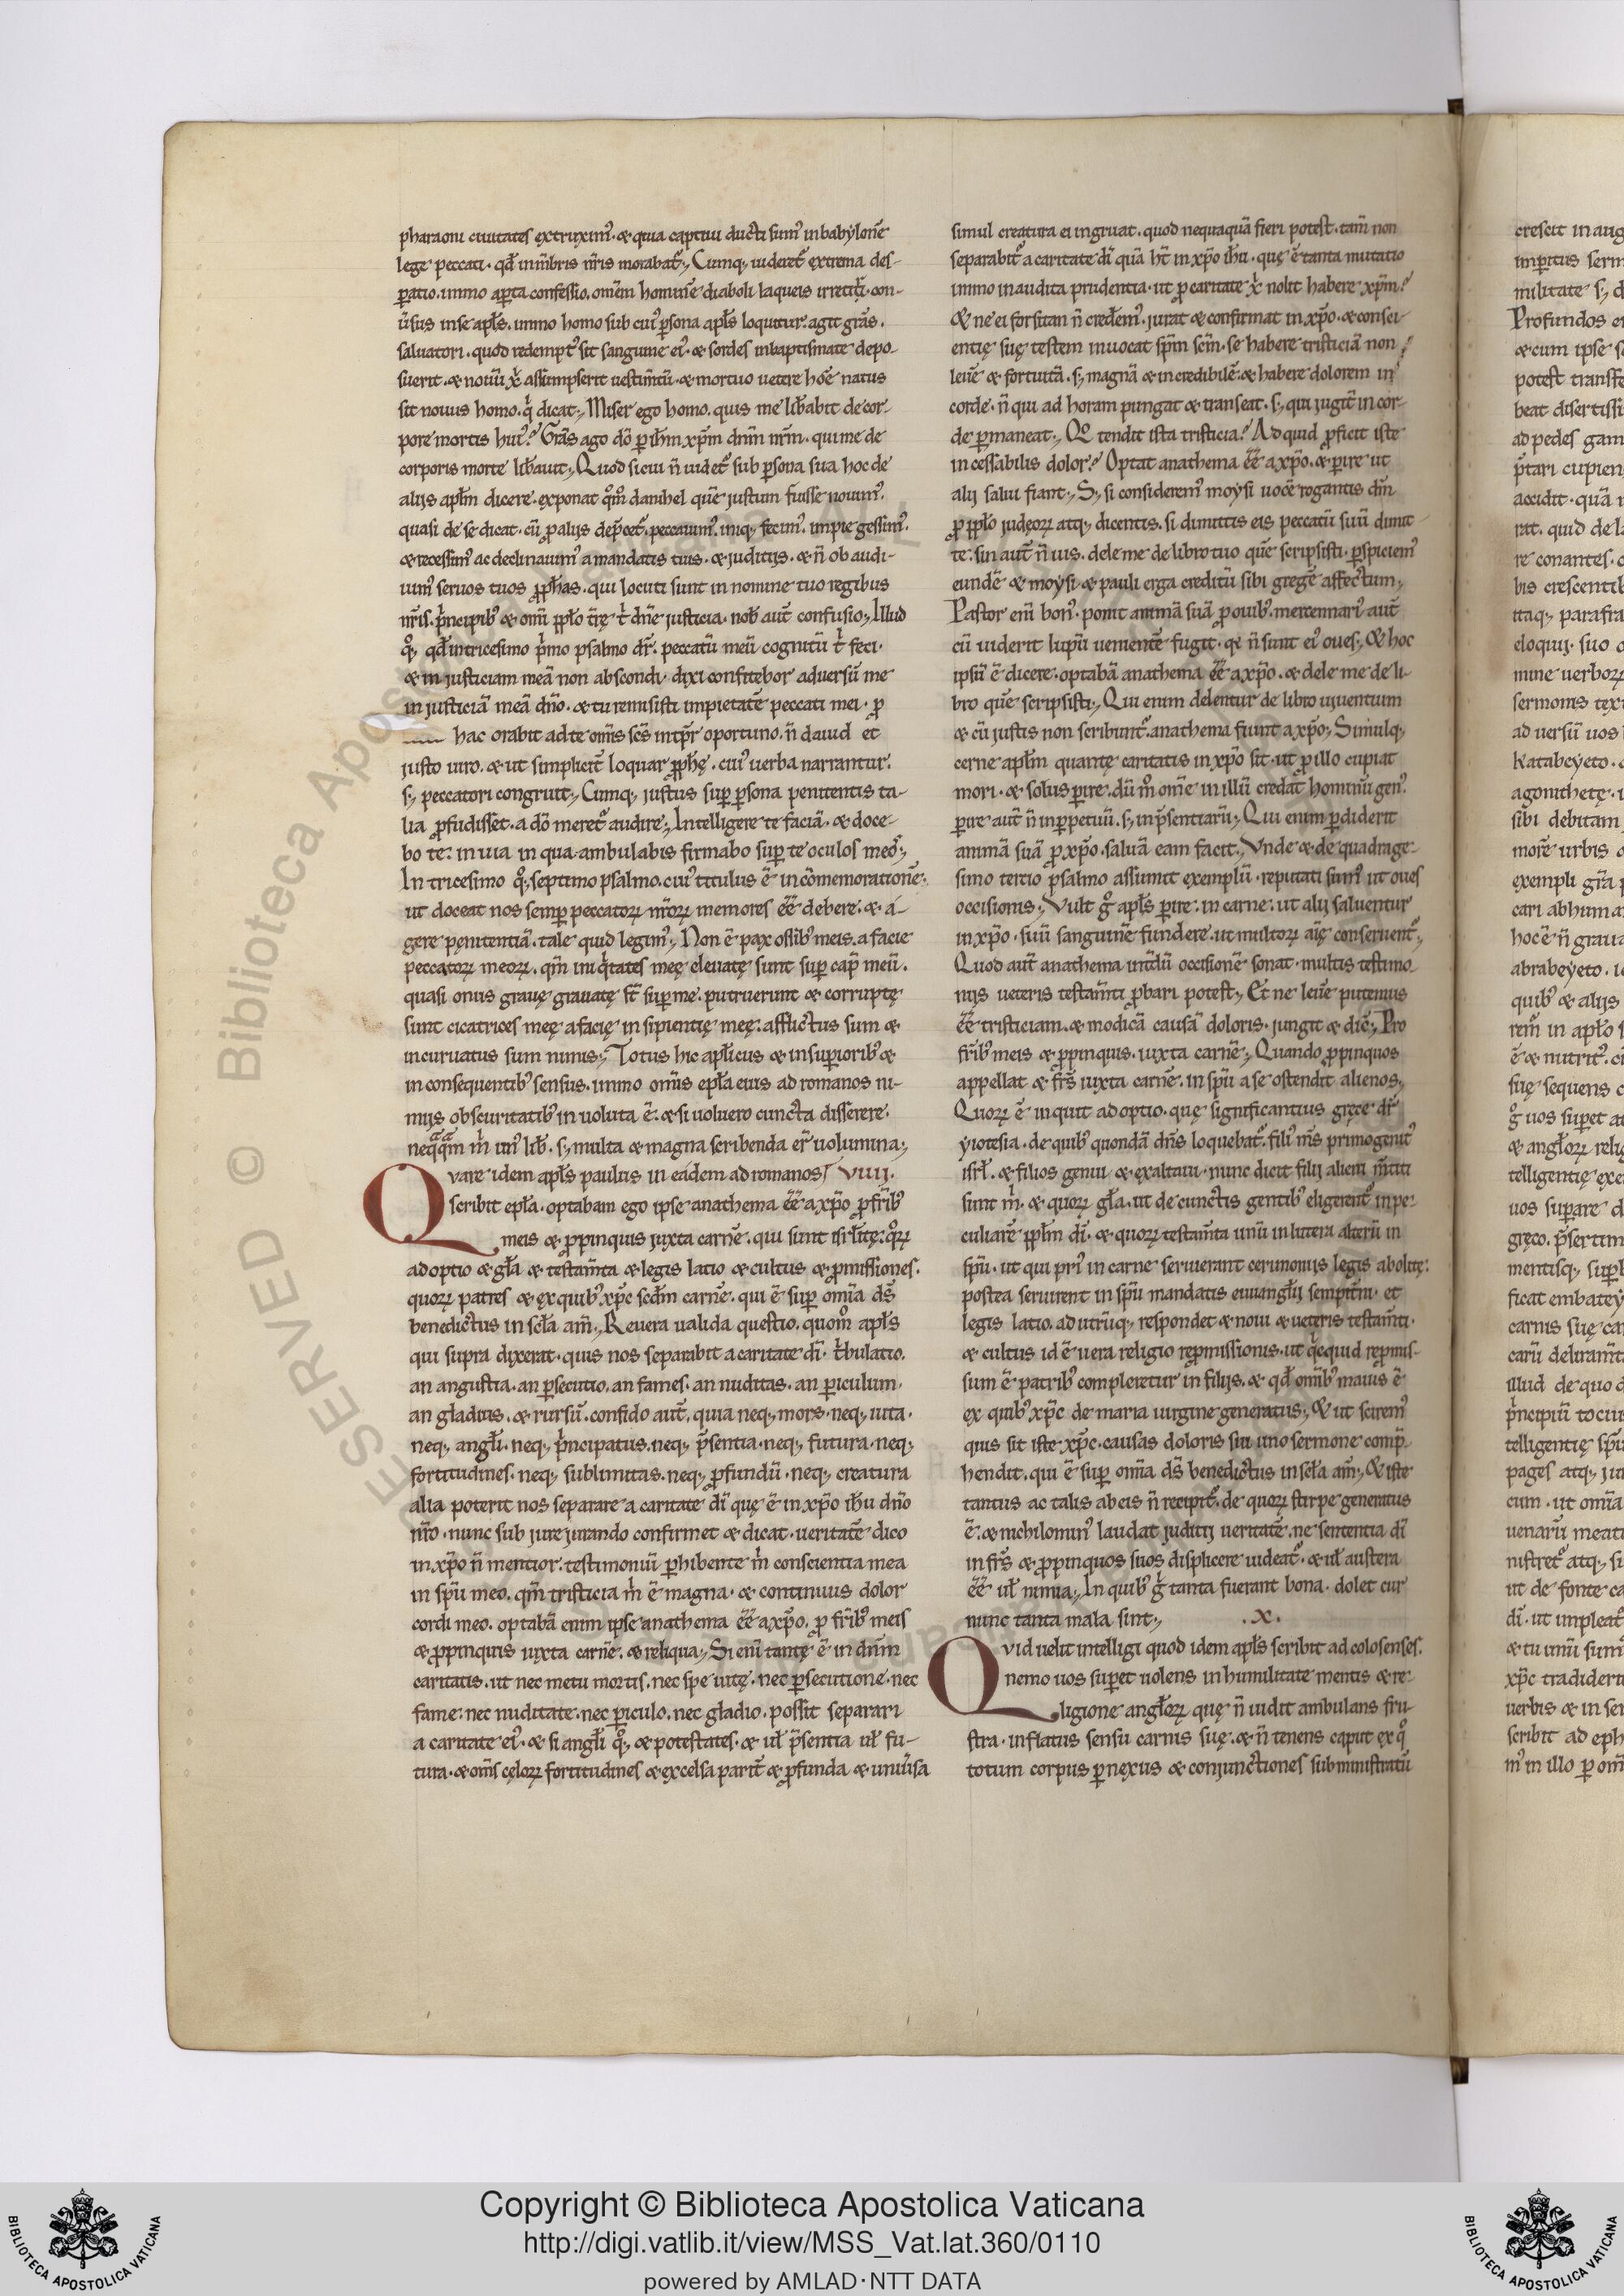 pharaoni ciuitates extruxim᾽. & quia captiui ducti sum᾽ in babylonē
lege peccati. qđ in mb̄ris nr̄is morabat᾽. Cumq; uideret extrema des-
ꝑatio. immo aꝑta confessio. omēm hominē diaboli laqueis irretiri. con-
ūsus in se apl̄s. immo homo sub cui᾽ ꝑsona apl̄s loquitur. agit grās.
saluatori. quod redempt᾽ sit sanguine ei᾽. & sordes in baptismate depo-
suerit. & nouū xp̄i assumpserit uestimtū. & mortuo uetere hoīe natus
sit nouus homo. q dicat. Miser ego homo. quis me lib̄abit de cor-
pore mortis hui᾽? Grās ago dō ꝑ ih̄m xp̄m dnm̄ nr̄m. qui me de
corporis morte lib̄auit. Quod si cui n̄ uidet᾽ sub ꝑsona sua hoc de
alijs apl̄m dicere. exponat q̄m̊ danihel quē justum fuisse nouim᾽.
quasi de se dicat. cū ꝓ alijs dep̄cet᾽. peccauim᾽. iniq; fecim᾽. impie gessim᾽.
& recessim᾽ ac declinauim᾽ a mandatis tuis. & juditijs. & n̄ obaudi-
uim᾽ seruos tuos ꝓph̄as. qui locuti sunt in nomine tuo regibus
nr̄is. p̄ncipib᾽ & omī ppl̄o tr̄ę t dn̄e justicia. nob᾽ aut̄ confusio. Illud
q̊; qđ in tricesimo p̄mo psalmo dr̄. peccatū meū cognitū t feci.
& in justiciam meā non abscondi. dixi confitebor aduersū me
in justiciā meā dn̄o. & tu remisisti impietatē peccati mei. ꝓ
hac orabit ad te omīs scs̄ in tp̄r oportuno. n̄ dauid et
justo uiro. & ut simplicit̄ loquar ꝓph̄ę. cui᾽ uerba narrantur.
s; peccatori congruit. Cumq; justus suꝑ ꝑsona penitentis ta-
lia ꝓfudisset. a dō meret᾽ audire. Intelligere te faciā. & doce-
bo te. in uia in qua ambulabis firmabo suꝑ te oculos meo᾽.
In tricesimo q̊; septimo psalmo. cui᾽ titulus ē in cōmemorationē.
ut doceat nos semꝑ peccatoꝝ nr̄oꝝ memores eē̄ debere. & á-
gere pęnitentiā. tale quid legim᾽. Non ē pax ossib᾽ meis. a facie
peccatoꝝ meoꝝ. qm̄ iniqtates meę eleuatę sunt suꝑ cap̄ meū.
quasi onus grauę grauatę st̄ suꝑ me. putruerunt & corruptę
sunt cicatrices meę a facię in sipientię meę. afflictus sum &
incuruatus sum nimis. Totus hic apl̄icus & in suꝑiorib᾽ &
in consequentib᾽ sensus. immo omīs epl̄a eius ad romanos ni-
mijs obscuritatib᾽ in uoluta ē. & si uoluero cuncta disserere.
neqqm m un᾽ lib̄. s; multa & magna scribenda er̄ uolumina.
Quare idem apl̄s paulus in eádem ad romanos VIIII.
scribit epl̄a. optabam ego ipse anathema eē̄ a xp̄o ꝓ fr̄ib᾽
meis & ꝓpinquis juxta carnē. qui sunt isr̄litę. q̊ꝝ
adoptio & gl̄a & testam̄ta & legis latio & cultus & ꝓmissiones.
quoꝝ patres & ex quib᾽ xp̄c scđm carnē. qui ē suꝑ omīa ds̄
benedictus in scl̄a am̄. Reuera ualida questio. quom̊ apl̄s
qui supra dixerat. quis nos separabit a caritate di᾽. tbulatio.
an angustia. an ꝑsecutio. an fames. an nuditas. an ꝑiculum.
an gladius. & rursū. confido aut̄. quia neq; mors. neq; uita.
neq; angl̄i. neq; p̄ncipatus. neq; p̄sentia. neq; futura. neq;
fortitudines. neq; sublimitas. neq; ꝓfundū. neq; creatura
alia poterit nos separare a caritate dī quę ē in xp̄o ih̄u dn̄o
nr̄o. nunc sub jure jurando confirmet & dicat. ueritatē dico
in xp̄o n̄ mentior. testimoniū ꝑhibente m conscientia mea
in sp̄u meo. qm̄ tristicia m ē magna. & continuus dolor
cordi meo. optabā enim ipse anathema eē̄ a xp̄o. ꝓ fr̄ib᾽ meis
& ꝓpinquis iuxta carnē. & reliqua. Si enī tantę ē in dn̄m
caritatis. ut nec metu mortis. nec spe uitę. nec ꝑsecutione. nec
fame. nec nuditate. nec ꝑiculo. nec gladio. possit separari
a caritate ei᾽. & si angl̄i q̊; & potestates. & ul̄ p̄sentia ul̄ fu-
tura. & omīs cęloꝝ fortitudines & excelsa parit̄ & ꝓfunda & uniūsa
simul creatura ei ingruat. quod nequaquā fieri potest. tam̄ non
separabit᾽ a caritate dī quā ht̄ in xp̄o ih̄u. quę ē tanta mutatio
immo inaudita prudentia. ut ꝓ caritate xp̄i nolit habere xp̄m?
& ne ei forsitan n̄ credem᾽. jurat & confirmat in xp̄o. & consci-
entię suę testem inuocat sp̄m scm̄. se habere tristiciā non
leuē & fortuitā. s; magnā & incredibilē. & habere dolorem in
corde. n̄ qui ad horam pungat & transeat. s; qui jugit̄ in cor-
de ꝑmaneat. Quo tendit ista tristicia? Ad quid ꝓficit iste
incessabilis dolor? Optat anathema eē̄ a xp̄o. & ꝑire ut
alij salui fiant. S; si considerem᾽ moysi uocē rogantis dm̄
ꝓ ppl̄o judęoꝝ atq; dicentis. si dimittis eis peccatū suū dimit-
te. sin aut̄ n̄ uis. dele me de libro tuo quē scripsisti. ꝑspiciem᾽
eundē & moysi & pauli erga creditū sibi gregē affectum.
Pastor enī bon᾽. ponit animā suā ꝓ ouib᾽. mercennari᾽ aut̄
cū uiderit lupū uenientē fugit. qa n̄ sunt ei᾽ oues. & hoc
ipsū ē dicere. optabā anathema eē̄ a xp̄o. & dele me de li-
bro quē scripsisti. Qui enim delentur de libro uiuentium
& cū justis non scribunt᾽. anathema fiunt a xp̄o. Simulq;
cerne apl̄m quantę caritatis in xp̄o sit. ut ꝓ illo cupiat
mori. & solus ꝑire. dū m̊ omē in illū credat hominū gen᾽.
ꝑire aut̄ n̄ in ꝑpetuū. s; in p̄sentiarū. Qui enim ꝑdiderit
animā suā ꝓ xp̄o. saluā eam facit. Vnde & de quadrage-
simo tertio psalmo assumit exemplū. reputati sum᾽ ut oues
occisionis. Vult g̊ apl̄s ꝑire. in carne. ut alij saluentur
in xp̄o. suū sanguinē fundere. ut multoꝝ aīę conseruent᾽.
Quod aut̄ anathema int̄dū occisionē sonat. multis testimo-
nijs ueteris testam̄ti ꝓbari potest. Et ne leuē putemus
eē̄ tristiciam. & modicā causā doloris. jungit & dic̄. Pro
fr̄ib᾽ meis & ꝓpinquis. iuxta carnē. Quando ꝓpinquos
appellat & frs̄ iuxta carnē. in sp̄u a se ostendit alienos.
Quoꝝ ē inquit adoptio. quę significantius gręce dr̄
ẏiotesia. de quib᾽ quondā dn̄s loquebat᾽. fili᾽ ms̄ primogenit᾽
isrl̄. & filios genui & exaltaui. nunc dicit filij alieni m̄titi
sunt m. & quoꝝ gl̄a. ut de cunctis gentib᾽ eligerent᾽ in pe-
culiarē ppl̄m dī. & quoꝝ testam̄ta unū in littera alterū in
sp̄u. ut qui pri᾽ in carne seruierant cerimonijs legis abolitę.
postea seruirent in sp̄u mandatis euuangl̄ij sempit̄ni. et
legis latio. ad utrūq; respondet & noui & ueteris testam̄ti.
& cultus id ē uera religio reꝓmissionis. ut qcquid reꝓmis-
sum ē patrib᾽ compleretur in filijs. & qđ omīb᾽ maius ē
ex quib᾽ xp̄c de maria uirgine generatus. & ut scirem᾽
quis sit iste xp̄c. causas doloris sui uno sermone comp̄-
hendit. qui ē suꝑ omīa ds̄ benedictus in scl̄a am̄. & iste
tantus ac talis ab eis n̄ recipit᾽. de quoꝝ stirpe generatus
ē. & nichilomin᾽ laudat juditij ueritatē. ne sententia dī
in frs̄ & ꝓpinquos suos displicere uideat᾽. & ul̄ austera
eē̄ ul̄ nimia. In quib᾽ g tanta fuerant bona. dolet cur
nunc tanta mala sint. .x.
Quid uelit intelligi quod idem apl̄s scribit ad colosenses.
nemo uos suꝑet uolens in humilitate mentis & re-
ligione angl̄oꝝ quę n̄ uidit ambulans fru-
stra. inflatus sensu carnis suę. & n̄ tenens caput ex q̊
totum corpus ꝑ nexus & conjunctiones subministratū
Copyright © Biblioteca Apostolica Vaticana
http://digi.vatlib.it/view/MSS_Vat.lat.360/0110
powered by AMLAD·NTT DATA
BIBLIOTECA APOSTOLICA VATICANA
BIBLIOTECA APOSTOLICA VATICANA